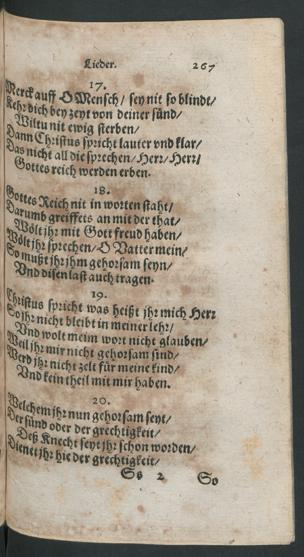 Lieder. 267
17.
Merck auff O Mensch / sey nit so blindt /
Kehr dich bey zeyt von deiner sünd /
Wiltu nit ewig sterben /
Dann Christus spricht lauter vnd klar /
Das nicht all die sprechen / Herr / Herr /
Gottes reich werden erben.
18.
Gottes Reich nit in worten staht /
Darumb greiffets an mit der that /
Wölt jhr mit Gott freud haben /
Wölt jhr sprechen / O Vatter mein /
So mußt jhr jhm gehorsam seyn /
Vnd disen last auch tragen.
19.
Christus spricht was heißt jhr mich Herr
So jhr nicht bleibt in meiner lehr /
Vnd wolt meim wort nicht glauben /
Weil jhr mir nicht gehorsam sind /
Werd jhr nicht zelt für meine kind /
Vnd kein theil mit mir haben.
20.
Welchem jhr nun gehorsam seyt /
Der sünd oder der grechtigkeit /
Deß Knecht seyt jhr schon worden /
Dienet jhr hie der grechtigkeit /
Ss 2 So